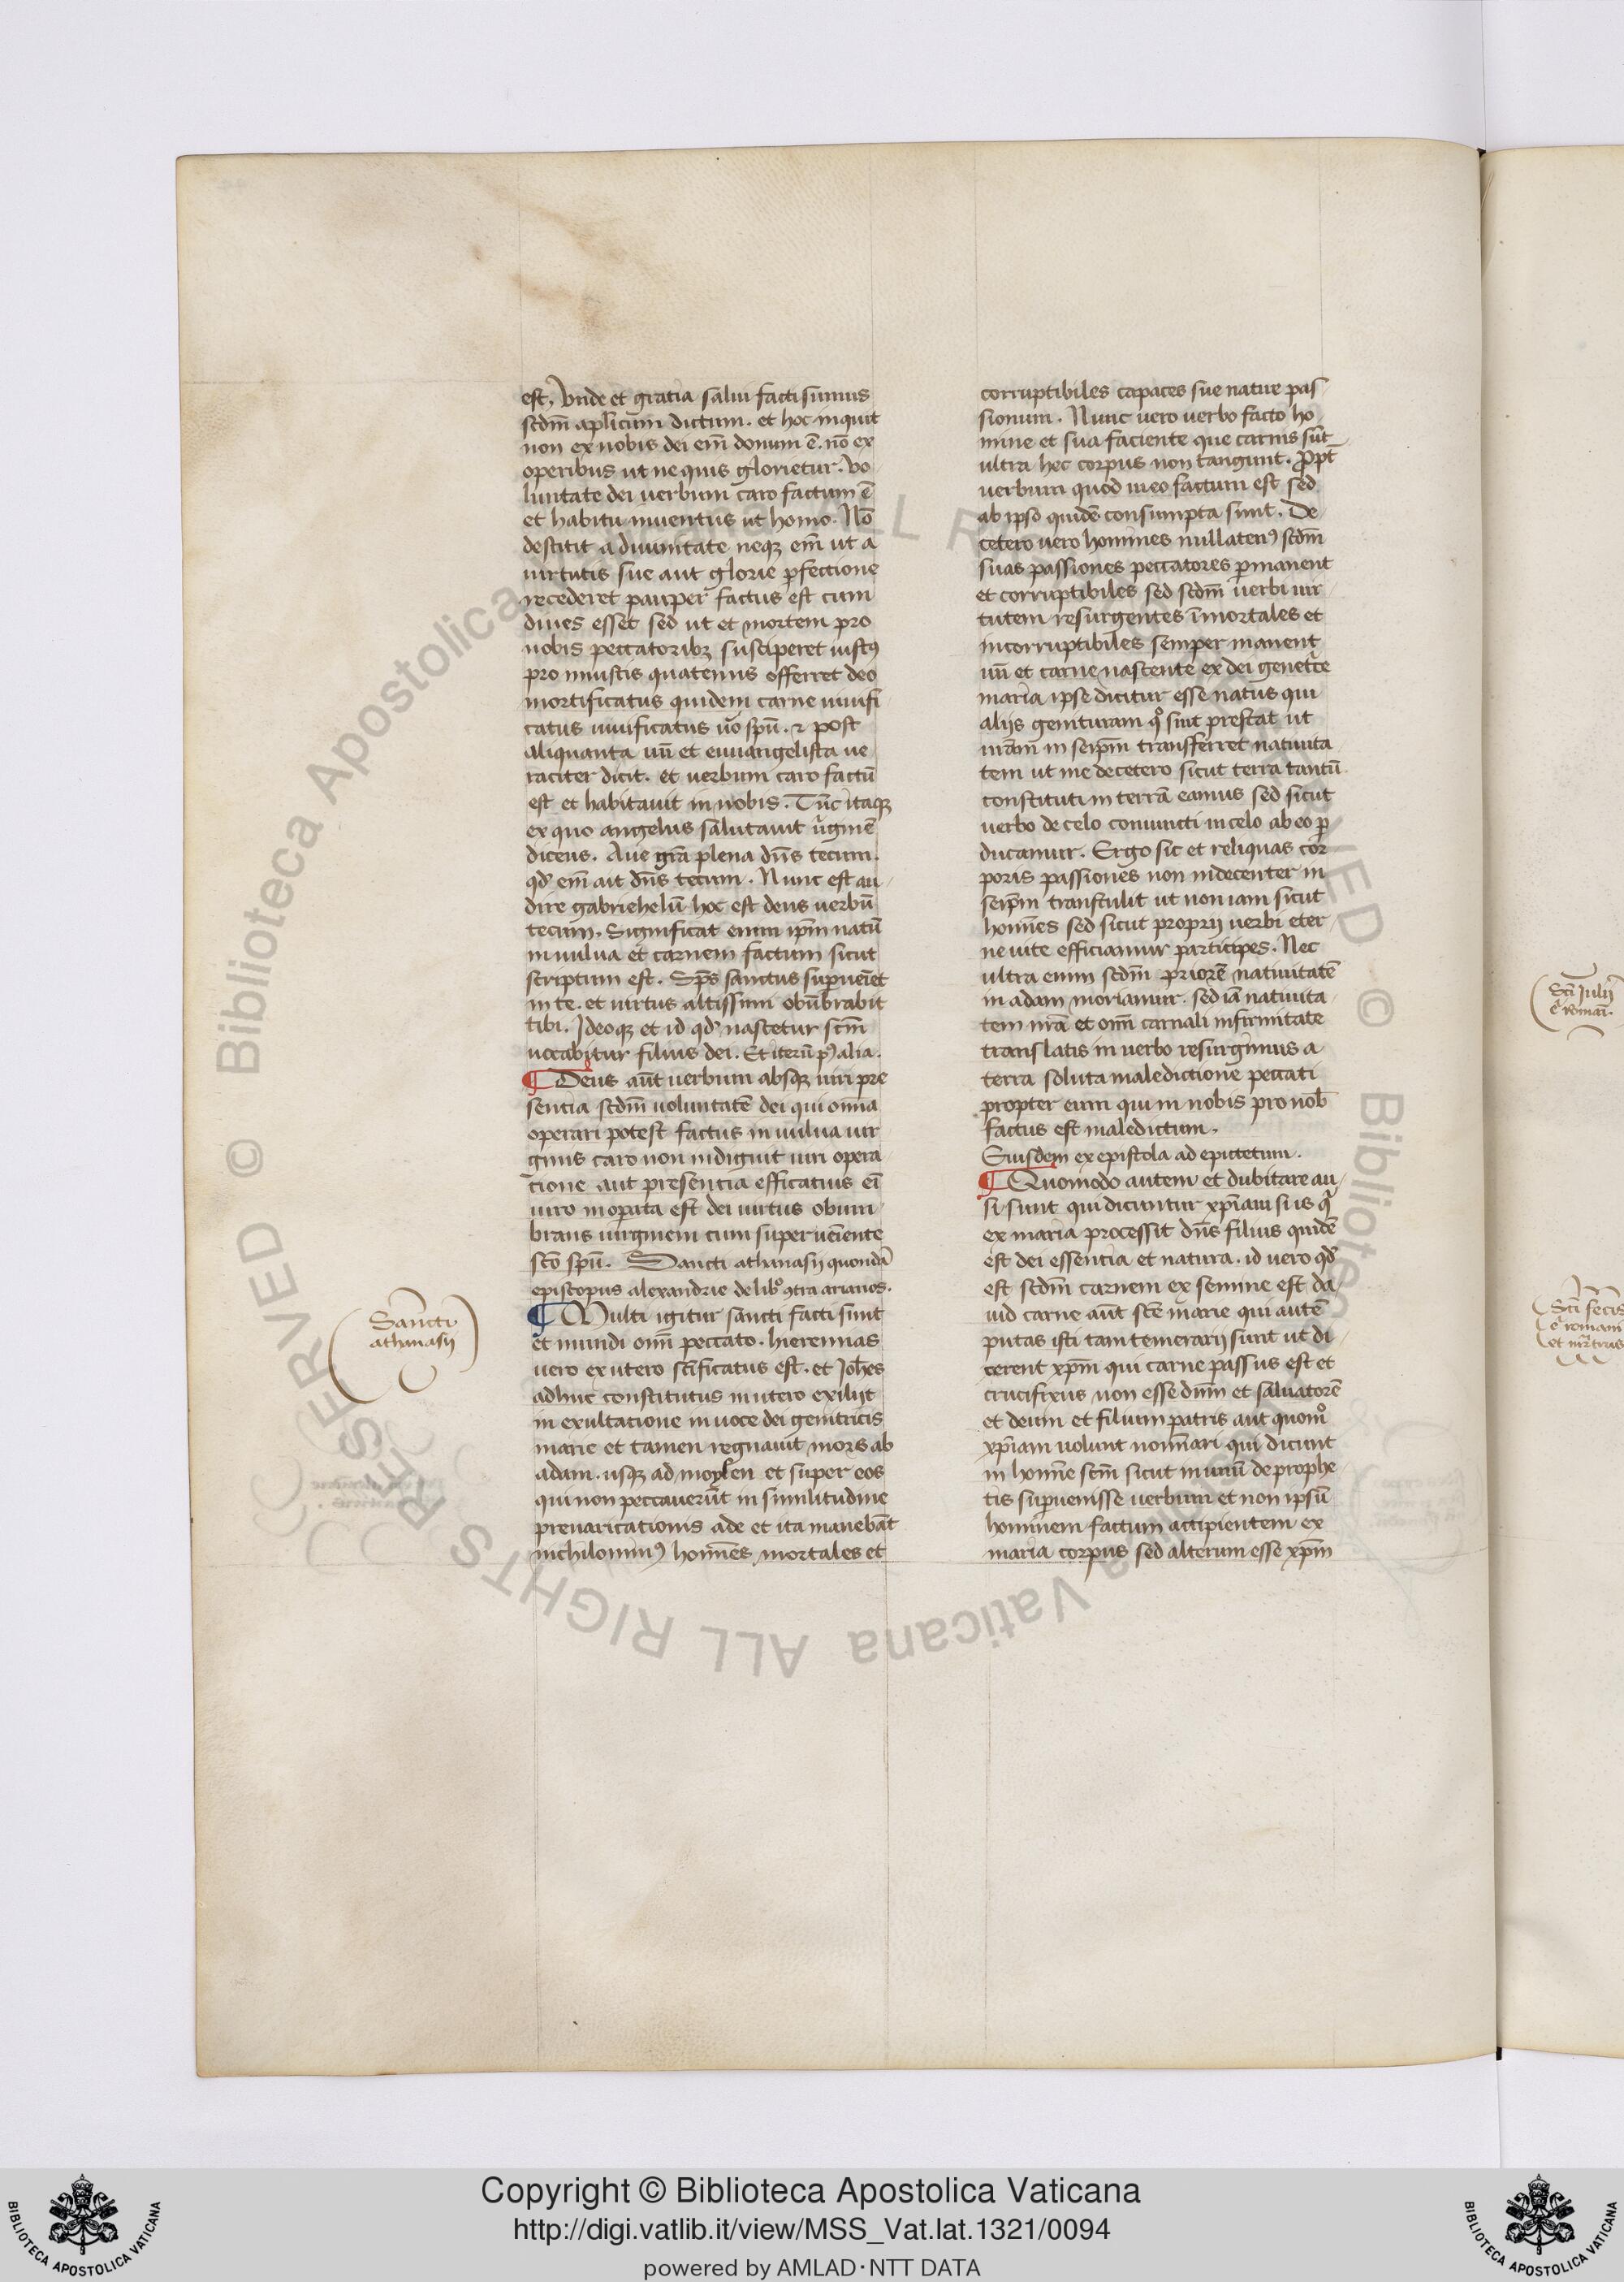 est, Vnde et gratia salui facti sumus
scdm̄ aplicum dictum. et hoc inquit
non ex nobis dei em̄ donum ē. nō ex
operibus ut ne quis glorietur. Vo
luntate dei uerbum caro factum ē
et habitu inuentus ut homo. Nō
destitit a diuinitate neqꝫ em̄ ut a
uirtutis sue aut glorie ꝑfectione
recederet pauper factus est cum
diues esset sed ut et mortem pro
nobis peccatoribꝫ susciperet iustꝰ
pro iniustis quatenus offerret deo
mortificatus quidem carne uiuifi
catus uiuificatus ūo spū. ⁊ post
aliquanta uū et euuangelista ue
raciter dicit. et uerbum caro factū
est et habitauit in nobis. Tūc itaqꝫ
ex quo angelus salutauit ūginē
dicens. Aue grā plena dn̄s tecum.
qd̓ em̄ ait dn̄s tecum. Nunc est au
dire gabriehelū hoc est deus uerbū
tecum. Significat enim ip̄m natū
in uulua et carnem factum sicut
scriptum est. Sp̄s sanctus suꝑueīet
in te. et uirtus altissimi obūbrabit
tibi. Ideoqꝫ et id qd̓ nascetur scm̄
uocabitur filius dei. Et iterū pꝰ alia.
¶ Deus aūt uerbum absqꝫ uiri pre
sentia scdm̄ uoluntatē dei qui oīnia
operari potest factus in uulua uir
ginis caro non indiguit uiri opera
tione aut presentia efficatius eī
uiro inoꝑata est dei uirtus obum
brans uirginem cum superueīente
scō spū. Sancti athanasij quondā
episcopus alexandrie de libº ꝯtra arianos.
¶ Multi igitur sancti facti sunt
et mundi om̄ peccato. hieremias
uero ex utero scīficatus est. et Ioh̄es
adhuc constitutus in utero exilijt
in exultatione in uoce dei genitricis
marie et tamen regnauit mors ab
adam. usqꝫ ad moysen et super eos
qui non peccauerūt in similitudine
preuaricationis ade et ita manebāt
nichilominꝰ homīes mortales et
Sancti
athanasij
corruptibiles capaces sue nature pas
sionum. Nunc uero uerbo facto ho
mine et sua faciente que carnis sūt
ultra hec corpus non tangunt. Ꝓpt̄
uerbum quod in eo factum est sed
ab ipso quidē consumpta sunt. De
cetero uero homines nullatenꝰ scdm̄
suas passiones peccatores ꝑmanent
et corruptibiles sed scdm̄ uerbi uir
tutem resurgentes īmortales et
incorruptibiles semper manent
uū et carne nascente ex dei genetͥce
maria ipse dicitur esse natus qui
alijs genituram qͦ sint prestat ut
nrām in seip̄m transferret natiuita
tem ut ne decetero sicut terra tantū
constituti in terrā eamus sed sicut
uerbo de celo coniuncti in celo ab eo ꝑ
ducamur. Ergo sic et reliquas cor
poris passiones non indecenter in
seip̄m transtulit ut non iam sicut
homīes sed sicut proprij uerbi eter
ne uite efficiamur participes. Nec
ultra enim scdm̄ priorē natiuitatē
in adam moriamur. sed iā natiuita
tem nrā et om̄ carnali infirmitate
translatis in uerbo resurgimus a
terra soluta maledictione peccati
propter eum qui in nobis pro nob̄
factus est maledictum.
Eiusdem ex epistola ad epictetum.
¶ Quomodo autem et dubitare au
si sunt qui dicuntur xp̄iani si is qͥ
ex maria processit dn̄s filius quidē
est dei essentia et natura. id uero qd̓
est scdm̄ carnem ex semine est da
uid carne aūt scē marie qui autē
putas isti tam temerarij sunt ut di
cerent xp̄m qui carne passus est et
crucifixus non esse dnm̄ et saluatorē
et deum et filium patris aut quomͦ
xp̄iani uolunt nomīari qui dicunt
in homīe scm̄ sicut in unū de prophe
tis suꝑuenisse uerbum et non ipsū
hominem factum accipientem ex
maria corpus sed alterum esse xp̄m
Scī Iulij
Copyright © Biblioteca Apostolica Vaticana
http://digi.vatlib.it/view/MSS_Vat.lat.1321/0094
powered by AMLAD·NTT DATA
BIBLIOTECA APOSTOLICA VATICANA
BIBLIOTECA APOSTOLICA VATICANA
© Biblioteca Apostolica Vaticana ALL RIGHTS RESERVED